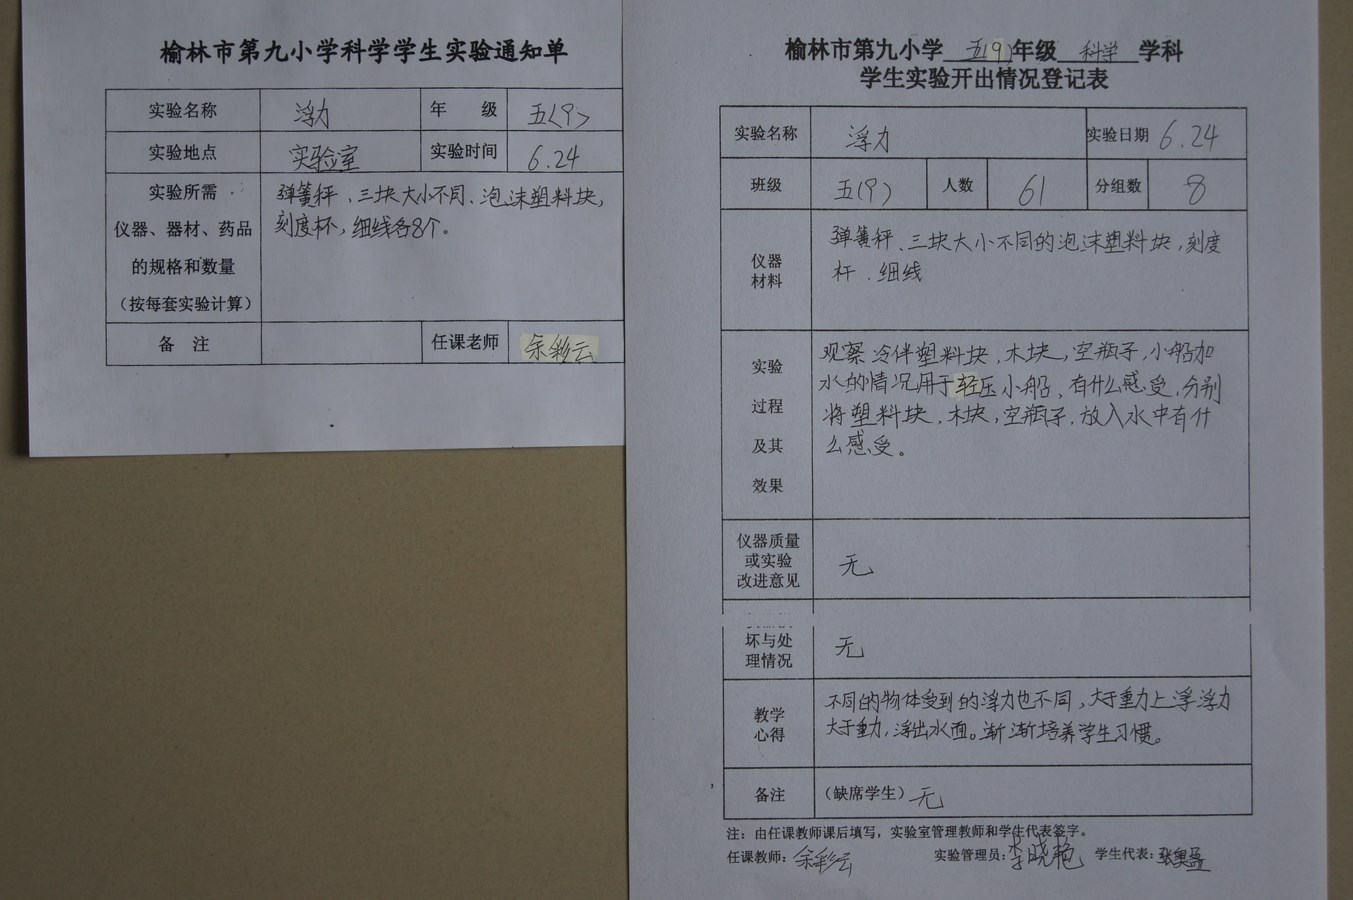 榆林市第九小学科学学生实验通知单
实验名称 浮力 年 级 五(9)
实验地点 实验室 实验时间 6.24
实验所需
仪器、器材、药品
的规格和数量
（按每套实验计算）
弹簧秤、三块大小不同、泡沫塑料块，
刻度杯，细线各8个。
备 注 任课老师 余彩云
榆林市第九小学 五(9) 年级 科学 学科
学生实验开出情况登记表
实验名称 浮力 实验日期 6.24
班级 五(9) 人数 61 分组数 8
仪器
材料
弹簧秤、三块大小不同的泡沫塑料块，刻度
杆．细线
实验
过程
及其
效果
观察泠伴塑料块，木块，空瓶子，小船加
水的情况用于轻压小船，有什么感受，分别
将塑料块，木块，空瓶子，放入水中有什
么感受。
仪器质量
或实验
改进意见
无
坏与处
理情况
无
教学
心得
不同的物体受到的浮力也不同，大于重力上浮浮力
大于重力，浮出水面。渐渐培养学生习惯。
备注 （缺席学生）无
注：由任课教师课后填写，实验室管理教师和学生代表签字。
任课教师：余彩云 实验管理员：李晓艳 学生代表：